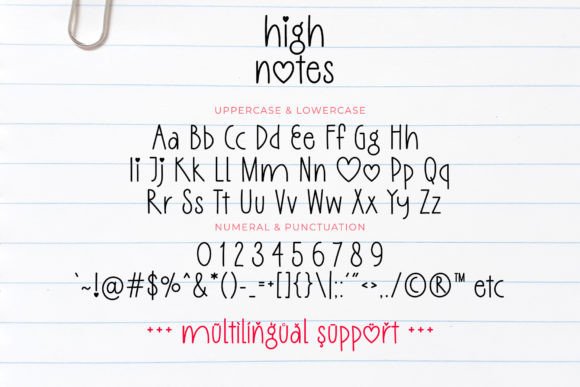 high
notes
UPPERCASE & LOWERCASE
Aa Bb Cc Dd Ee Ff Gg Hh
Ii Jj Kk Ll Mm Nn Oo Pp Qq
Rr Ss Tt Uu Vv Ww Xx Yy Zz
NUMERAL & PUNCTUATION
0 1 2 3 4 5 6 7 8 9
`~!@#$%^&*()-_=+[]{}\|;:'"<>,./©®™ etc
+++ multilingual şupport +++